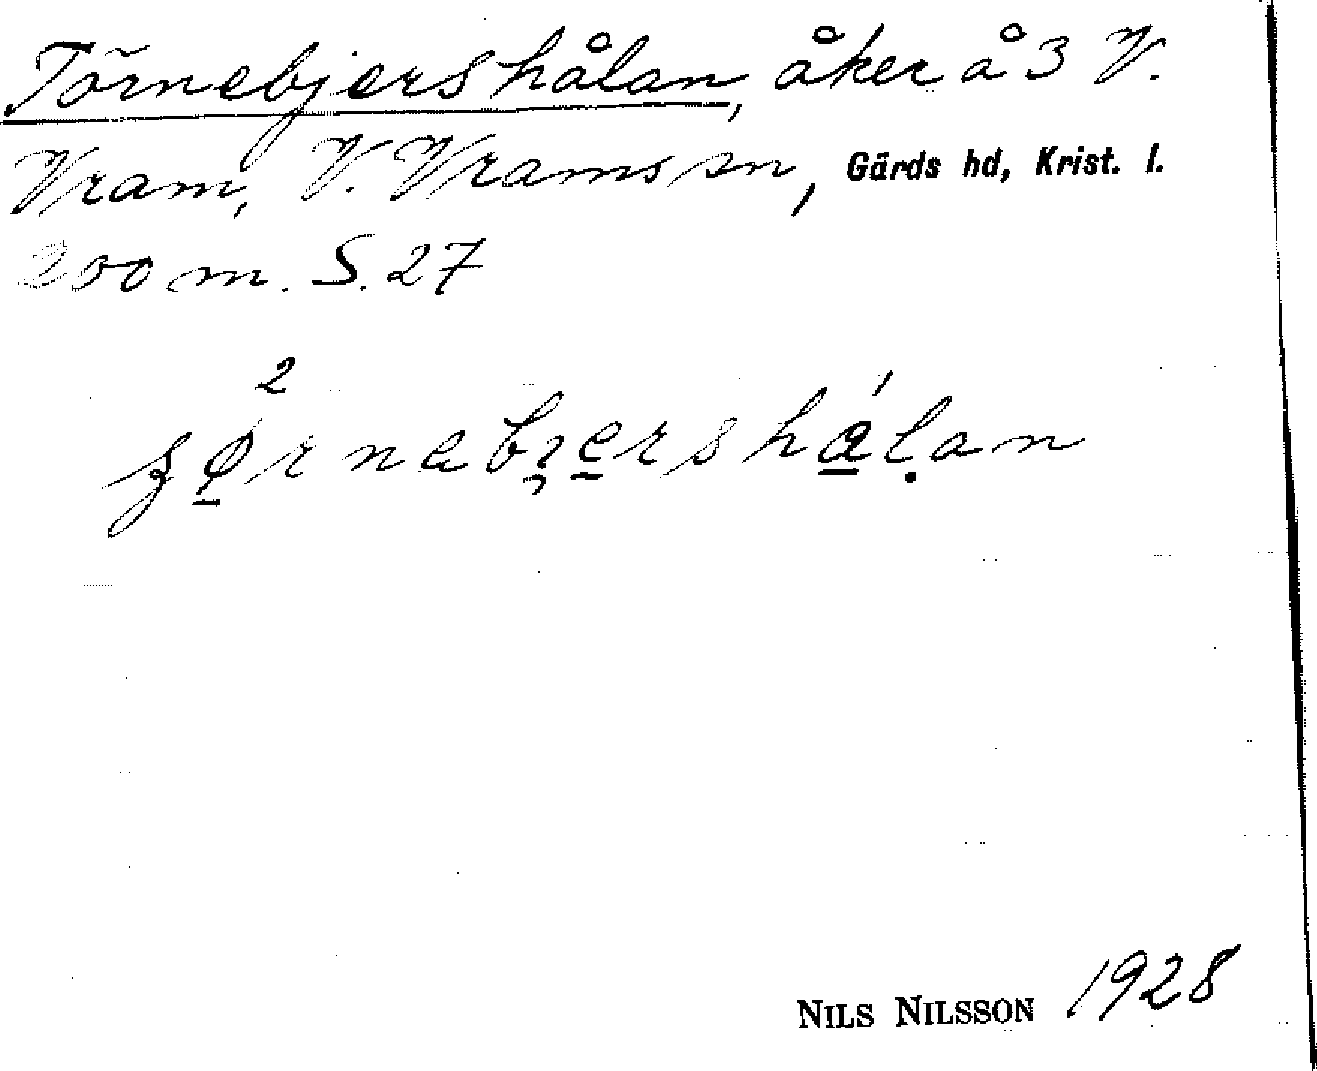 Törnebjershålan, åker å 3 V.
Vram, V. Vrams sn, Gärds hd, Krist. l.
200 m. S. 27
2
NILS NILSSON 1928